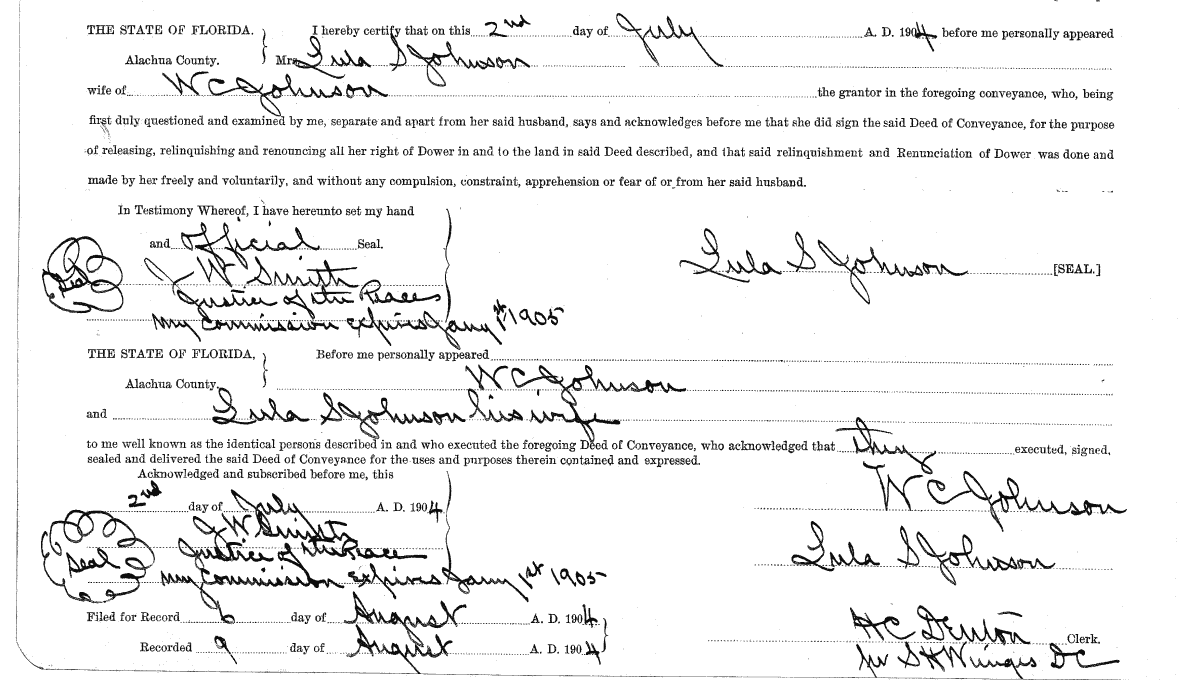 THE STATE OF FLORIDA. I hereby certify that on this 2nd day of July A. D. 1904 before me personally appeared
Alachua County. Mrs Lula S Johnson
wife of W C Johnson the grantor in the foregoing conveyance, who, being
first duly questioned and examined by me, separate and apart from her said husband, says and acknowledges before me that she did sign the said Deed of Conveyance, for the purpose
of releasing, relinquishing and renouncing all her right of Dower in and to the land in said Deed described, and that said relinquishment and Renunciation of Dower was done and
made by her freely and voluntarily, and without any compulsion, constraint, apprehension or fear of or from her said husband.
In Testimony Whereof, I have hereunto set my hand
and official Seal.
Lula S Johnson [SEAL.]
Seal J W Smith
Justice of the Peace
My commission expires Jany 1st 1905
THE STATE OF FLORIDA, Before me personally appeared
Alachua County. W C Johnson
and Lula S Johnson his wife
to me well known as the identical persons described in and who executed the foregoing Deed of Conveyance, who acknowledged that they executed, signed,
sealed and delivered the said Deed of Conveyance for the uses and purposes therein contained and expressed.
Acknowledged and subscribed before me, this
2nd day of July A. D. 1904
W C Johnson
J W Smith
Seal Justice of the Peace
Lula S Johnson
My commission expires Jany 1st 1905
Filed for Record 6 day of August A. D. 1904
H C Denton Clerk.
Recorded 9 day of August A. D. 1904
per S H Wienges DC